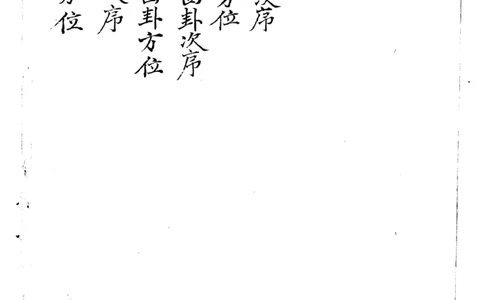 次序
方位
四卦次序
四卦方位
次序
方位